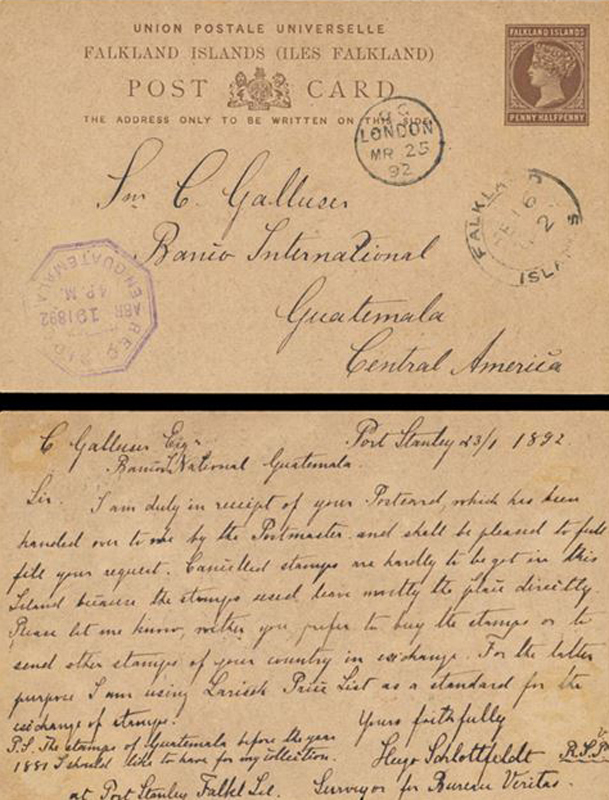 UNION POSTALE UNIVERSELLE
FALKLAND ISLANDS (ILES FALKLAND)
POST CARD
THE ADDRESS ONLY TO BE WRITTEN ON THIS SIDE
FALKLAND ISLANDS
PENNY HALFPENNY
LONDON
MR 25
92
FALKLAND
ISLANDS
Snr C. Galluser
Banco International
Guatemala
Central America
EN GUATEMALA
4 P.M.
ABR 19 1892
C Galluser Esqr Port Stanley 23/1 1892.
Banco I. National Guatemala.
Sir. I am duly in receipt of your Postcard, which has been
handed over to me by the Postmaster and shall be pleased to full
fill your request. Cancelled stamps are hardly to be got in this
Island because the stamps used leave mostly the place directly.
Please let me know, wether you prefer to buy the stamps or to
send other stamps of your country in exchange. For the latter
purpose I am using Larisch Price List as a standard for the
exchange of stamps. Yours faithfully
P.S. The stamps of Guatemala before the year
1881 I should like to have for my collection. Hugo Schlottfeldt
at Port Stanley Falkl Isl. Surveyor for Bureau Veritas.